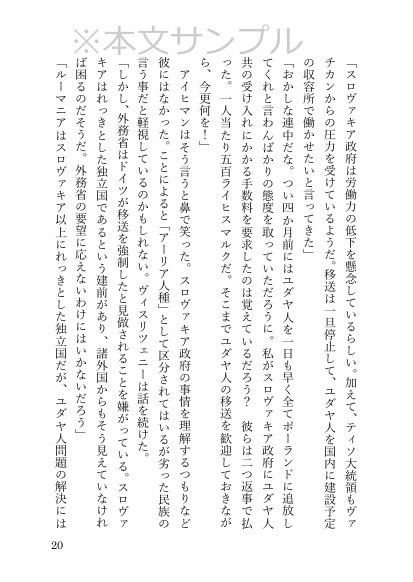 ※本文サンプル
「スロヴァキア政府は労働力の低下を懸念しているらしい。加えて、ティソ大統領もヴァ
チカンからの圧力を受けているようだ。移送は一旦停止して、ユダヤ人を国内に建設予定
の収容所で働かせたいと言ってきた」
「おかしな連中だな。つい四か月前にはユダヤ人を一日も早く全てポーランドに追放し
てくれと言わんばかりの態度を取っていただろうに。私がスロヴァキア政府にユダヤ人
共の受け入れにかかる手数料を要求したのは覚えているだろう？　彼らは二つ返事で払
った。一人当たり五百ライヒスマルクだ。そこまでユダヤ人の移送を歓迎しておきなが
ら、今更何を！」
アイヒマンはそう言うと鼻で笑った。スロヴァキア政府の事情を理解するつもりなど
彼にはなかった。ことによると「アーリア人種」として区分されてはいるが劣った民族の
言う事だと軽視しているのかもしれない。ヴィスリツェニーは話を続けた。
「しかし、外務省はドイツが移送を強制したと見做されることを嫌がっている。スロヴァ
キアはれっきとした独立国であるという建前があり、諸外国からもそう見えていなけれ
ば困るのだそうだ。外務省の要望に応えないわけにはいかないだろう」
「ルーマニアはスロヴァキア以上にれっきとした独立国だが、ユダヤ人問題の解決には
20